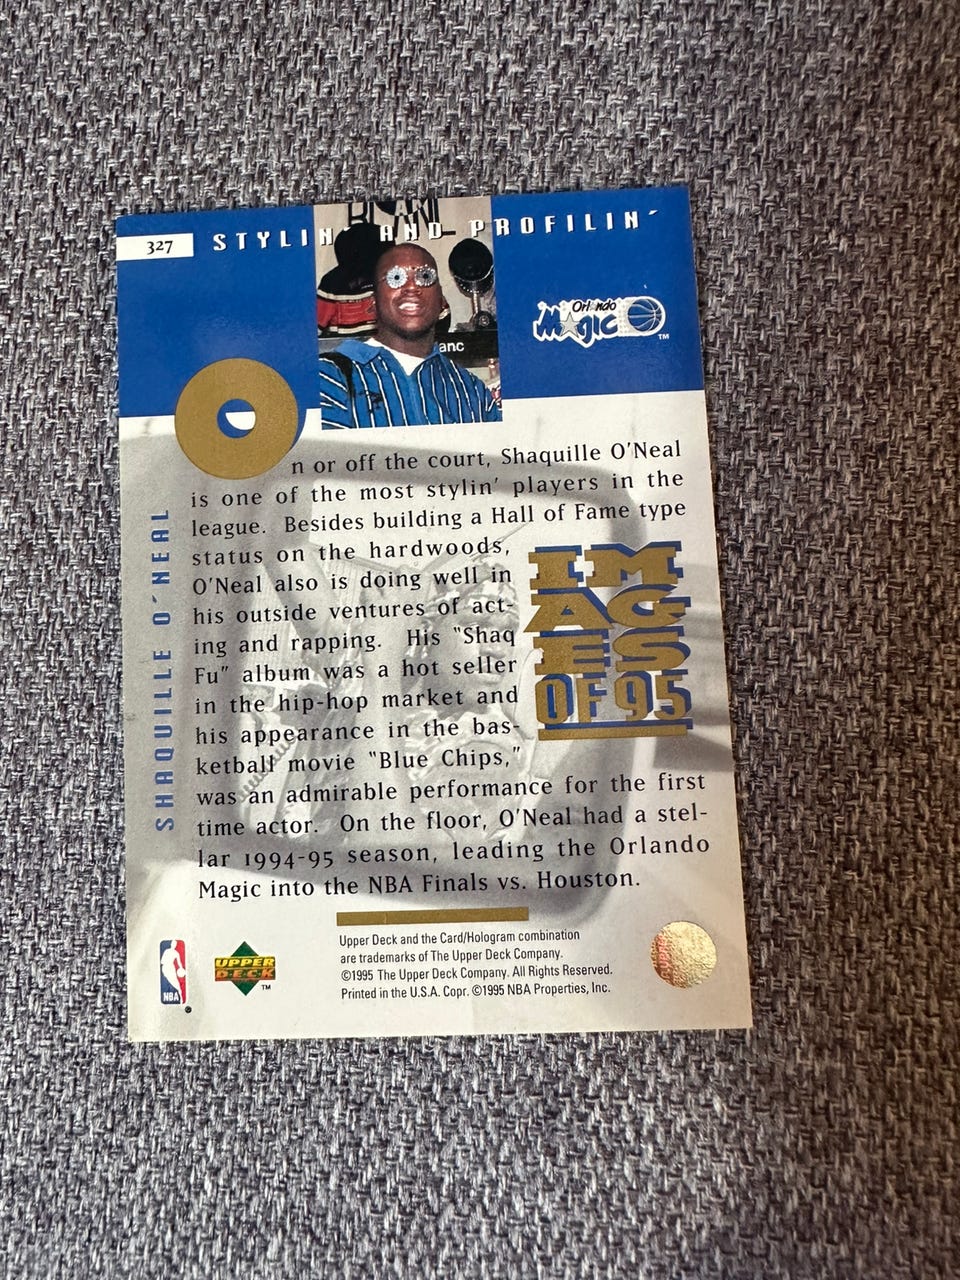 327
STYLIN' AND PROFILIN'
anc
Orlando
Magic
TM
SHAQUILLE O'NEAL
On or off the court, Shaquille O'Neal
is one of the most stylin' players in the
league. Besides building a Hall of Fame type
status on the hardwoods,
O'Neal also is doing well in
his outside ventures of act-
ing and rapping. His "Shaq
Fu" album was a hot seller
in the hip-hop market and
his appearance in the bas-
ketball movie "Blue Chips,"
was an admirable performance for the first
time actor. On the floor, O'Neal had a stel-
lar 1994-95 season, leading the Orlando
Magic into the NBA Finals vs. Houston.
IM
AG
ES
OF 95
NBA
®
UPPER
DECK
TM
Upper Deck and the Card/Hologram combination
are trademarks of The Upper Deck Company.
©1995 The Upper Deck Company. All Rights Reserved.
Printed in the U.S.A. Copr. ©1995 NBA Properties, Inc.